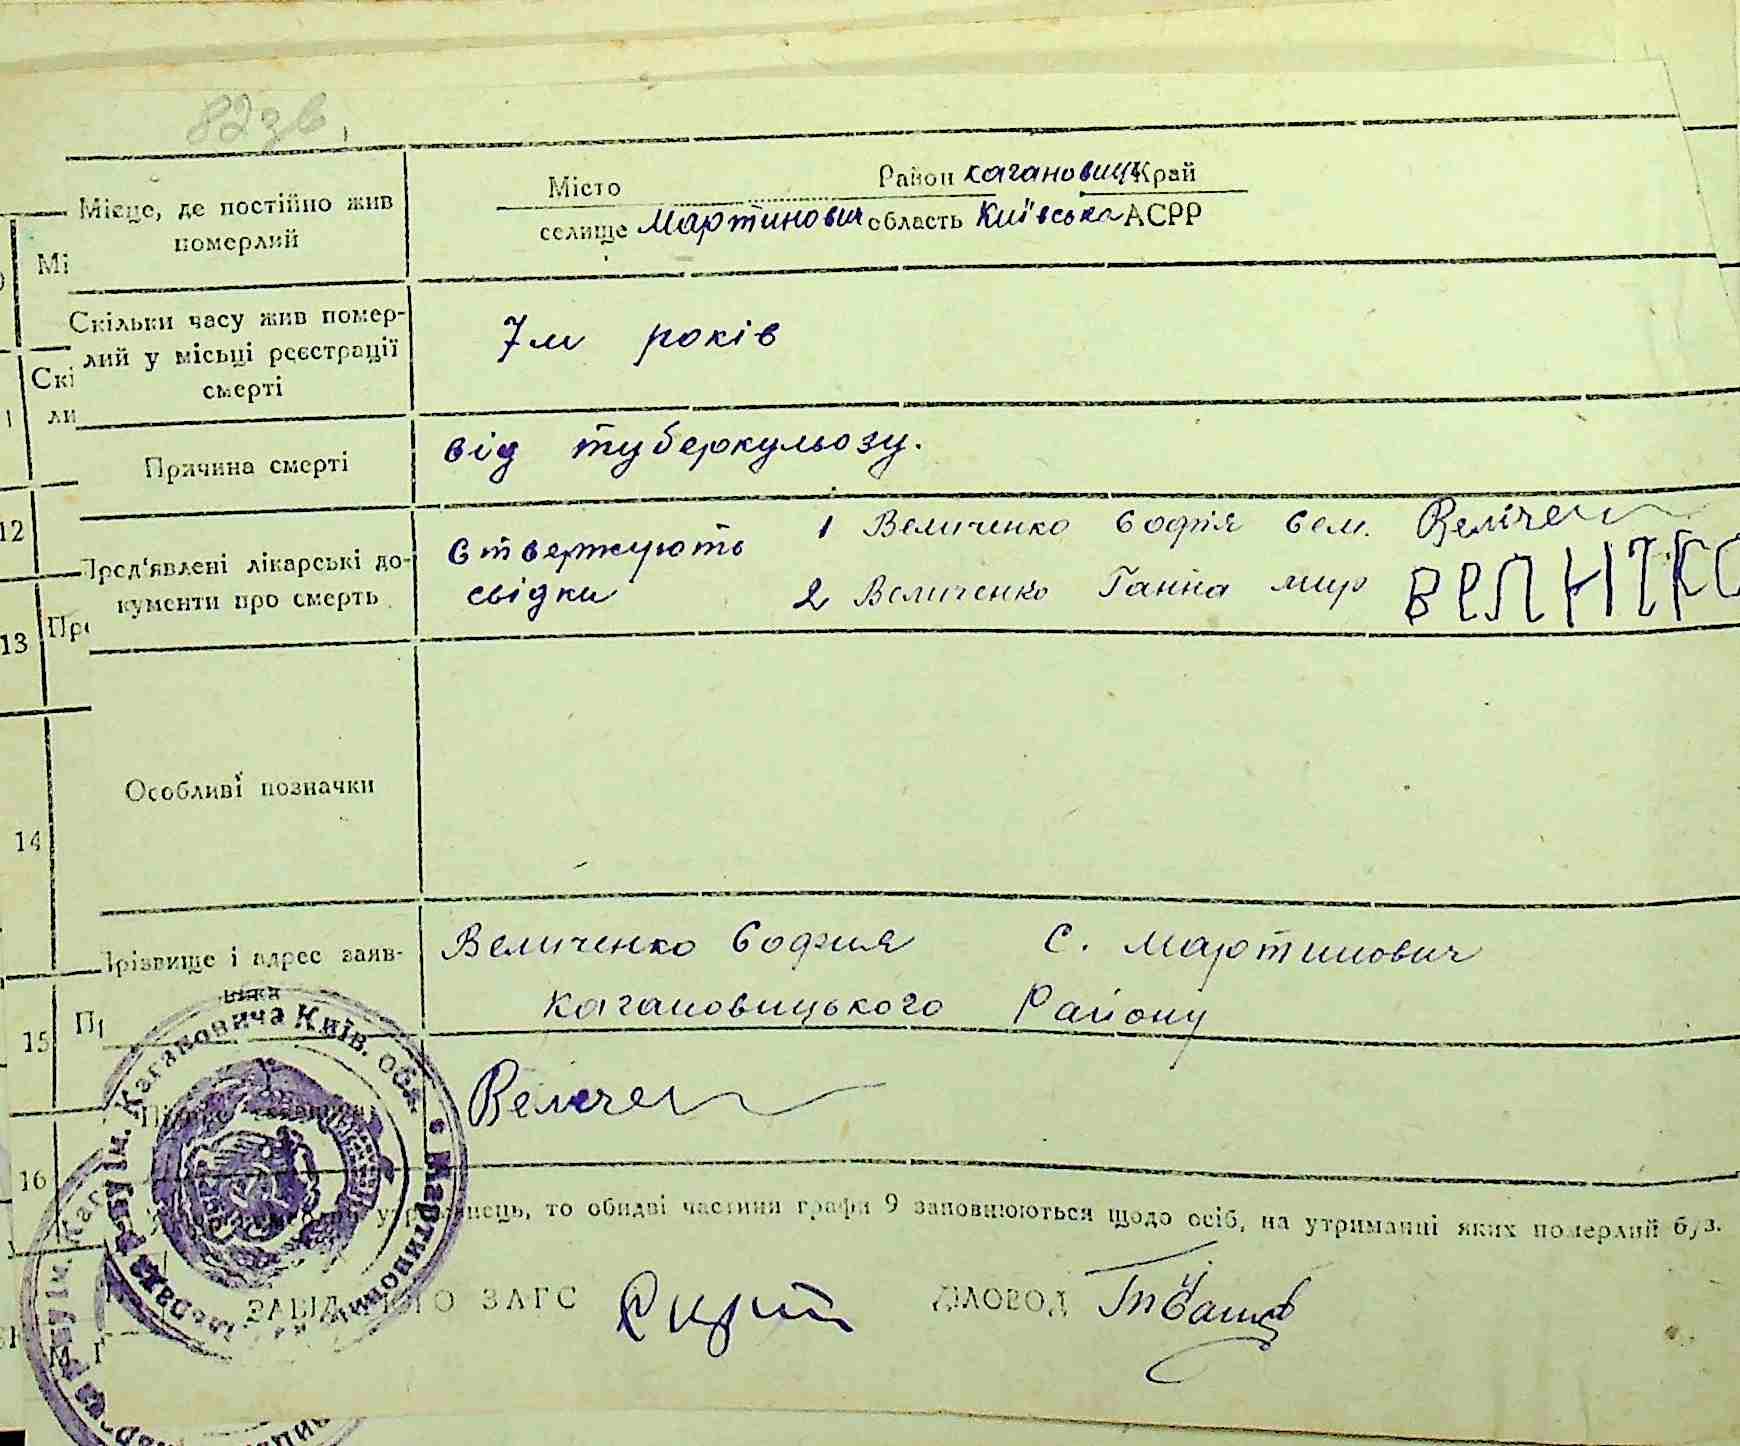 82 зв.
Місце, де постійно жив
померлий
Місто Район Кагановиц Край
селище Мартинович область Київська АСРР
Мі
Скільки часу жив помер-
лий у місьці реєстрації
смерті
7м років
Скі
ли
Причина смерті
від туберкульозу.
12
Пред'явлені лікарські до-
кументи про смерть
Ствержують
свідки
1 Величенко Софія Сем. Веліче
2 Величенко Ганна мир ВЕЛНЧКО
13
Пре
Особливі позначки
14
Прізвище і адрес заяв-
ника
Величенко София С. Мартинович
Кагановицького Району
15
Пр
Веліче
16
то обидві частини графи 9 заповнюються щодо осіб, на утриманні яких померлий б/з.
ЗАВІД ЗАГС ДІЛОВОД
М. Г
ім. Кагановича Київ. обл.